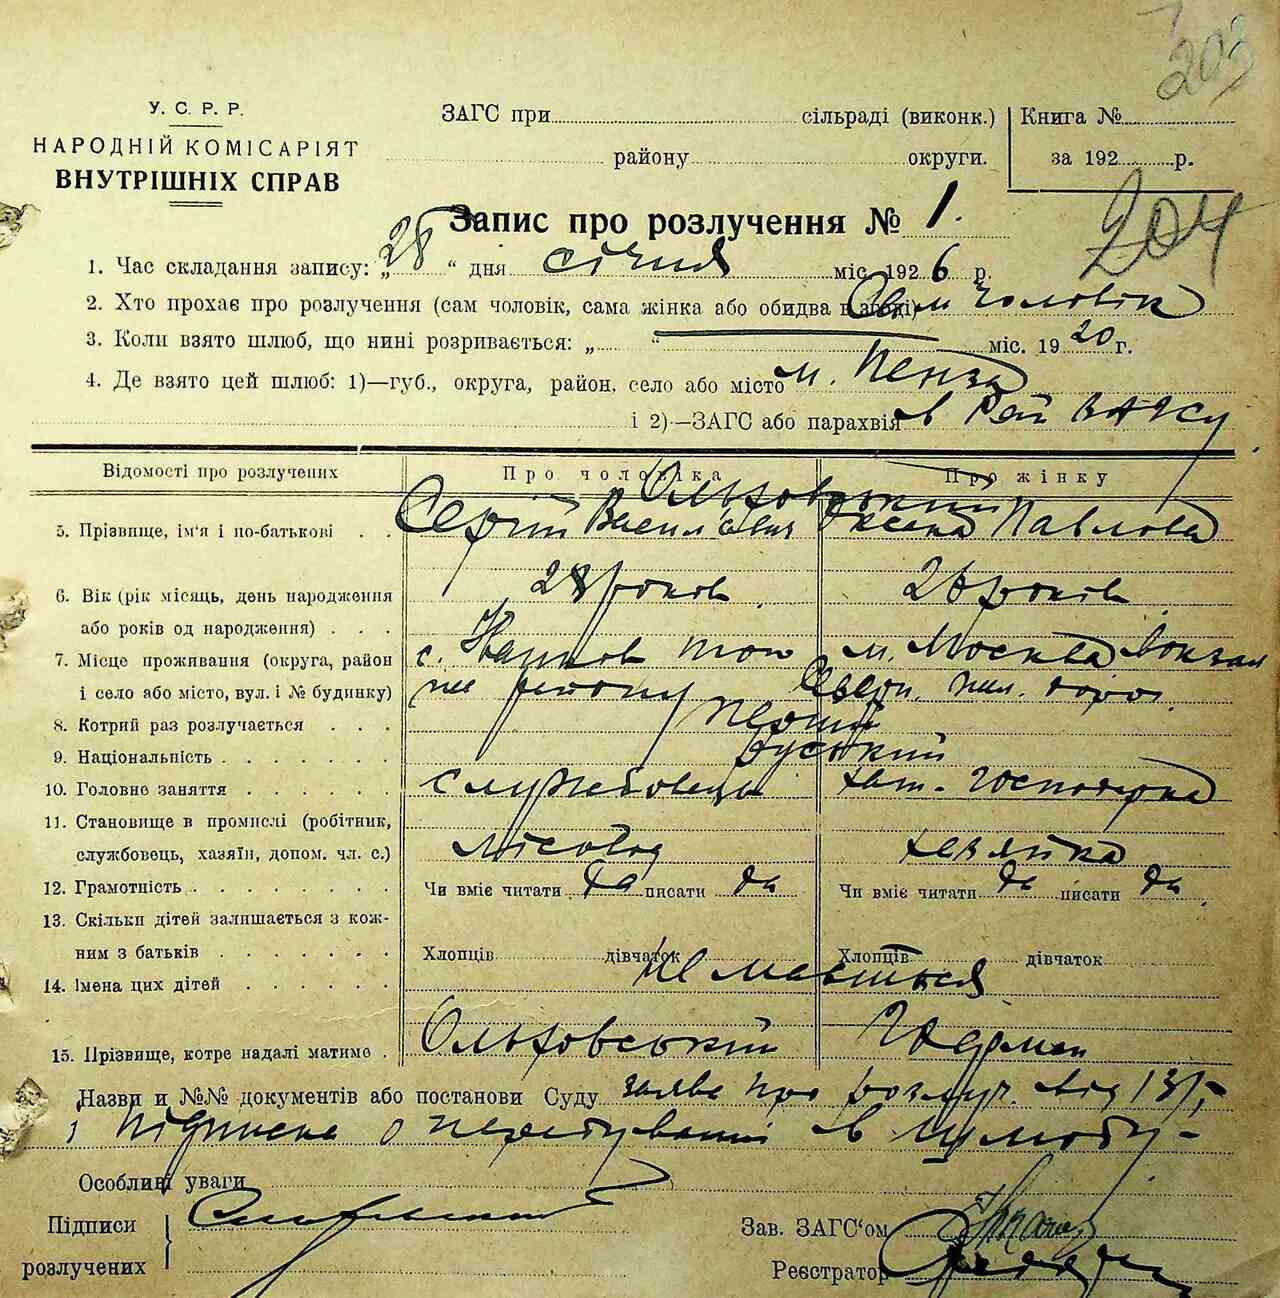 203
У. С. Р. Р.
НАРОДНІЙ КОМІСАРІЯТ
ВНУТРІШНІХ СПРАВ
ЗАГС при сільраді (виконк.)
району округи.
Книга №
за 192 р.
204
Запис про розлучення № 1.
1. Час складання запису: „28“ дня січня міс. 1926 р.
2. Хто прохає про розлучення (сам чоловік, сама жінка або обидва в згоді) Сам чоловік
3. Коли взято шлюб, що нині розривається: „ “ міс. 1920 г.
4. Де взято цей шлюб: 1)—губ., округа, район, село або місто м. Пенза
і 2)—ЗАГС або парахвія в Рай ЗАГСу
Відомості про розлучених Про чоловіка Про жінку
Ольховський
5. Прізвище, ім'я і по-батькові . . Сергій Васильович Оксана Павлова
6. Вік (рік місяць, день народження 28 років 26 років
або років од народження) . . .
7. Місце проживання (округа, район с. м. Москва вокзал
і село або місто, вул. і № будинку) району
8. Котрий раз розлучається . . . перший
9. Національність . . . . . . . руський
10. Головне заняття . . . . . . службовець хат. господарка
11. Становище в промислі (робітник,
службовець, хазяїн, допом. чл. с.) лісовод хазяйка
12. Грамотність . . . . . . . . Чи вміє читати да писати да Чи вміє читати да писати да
13. Скільки дітей залишається з кож-
ним з батьків . . . . . . . Хлопців дівчаток Хлопців дівчаток
не мається
14. Імена цих дітей . . . . . .
15. Прізвище, котре надалі матиме . Ольховський
Назви и №№ документів або постанови Суду заява про розлуч. від 13/I
і підписка о перебуванні в шлюбу-
Особливі уваги
Підписи
розлучених
Зав. ЗАГС‘ом
Реєстратор